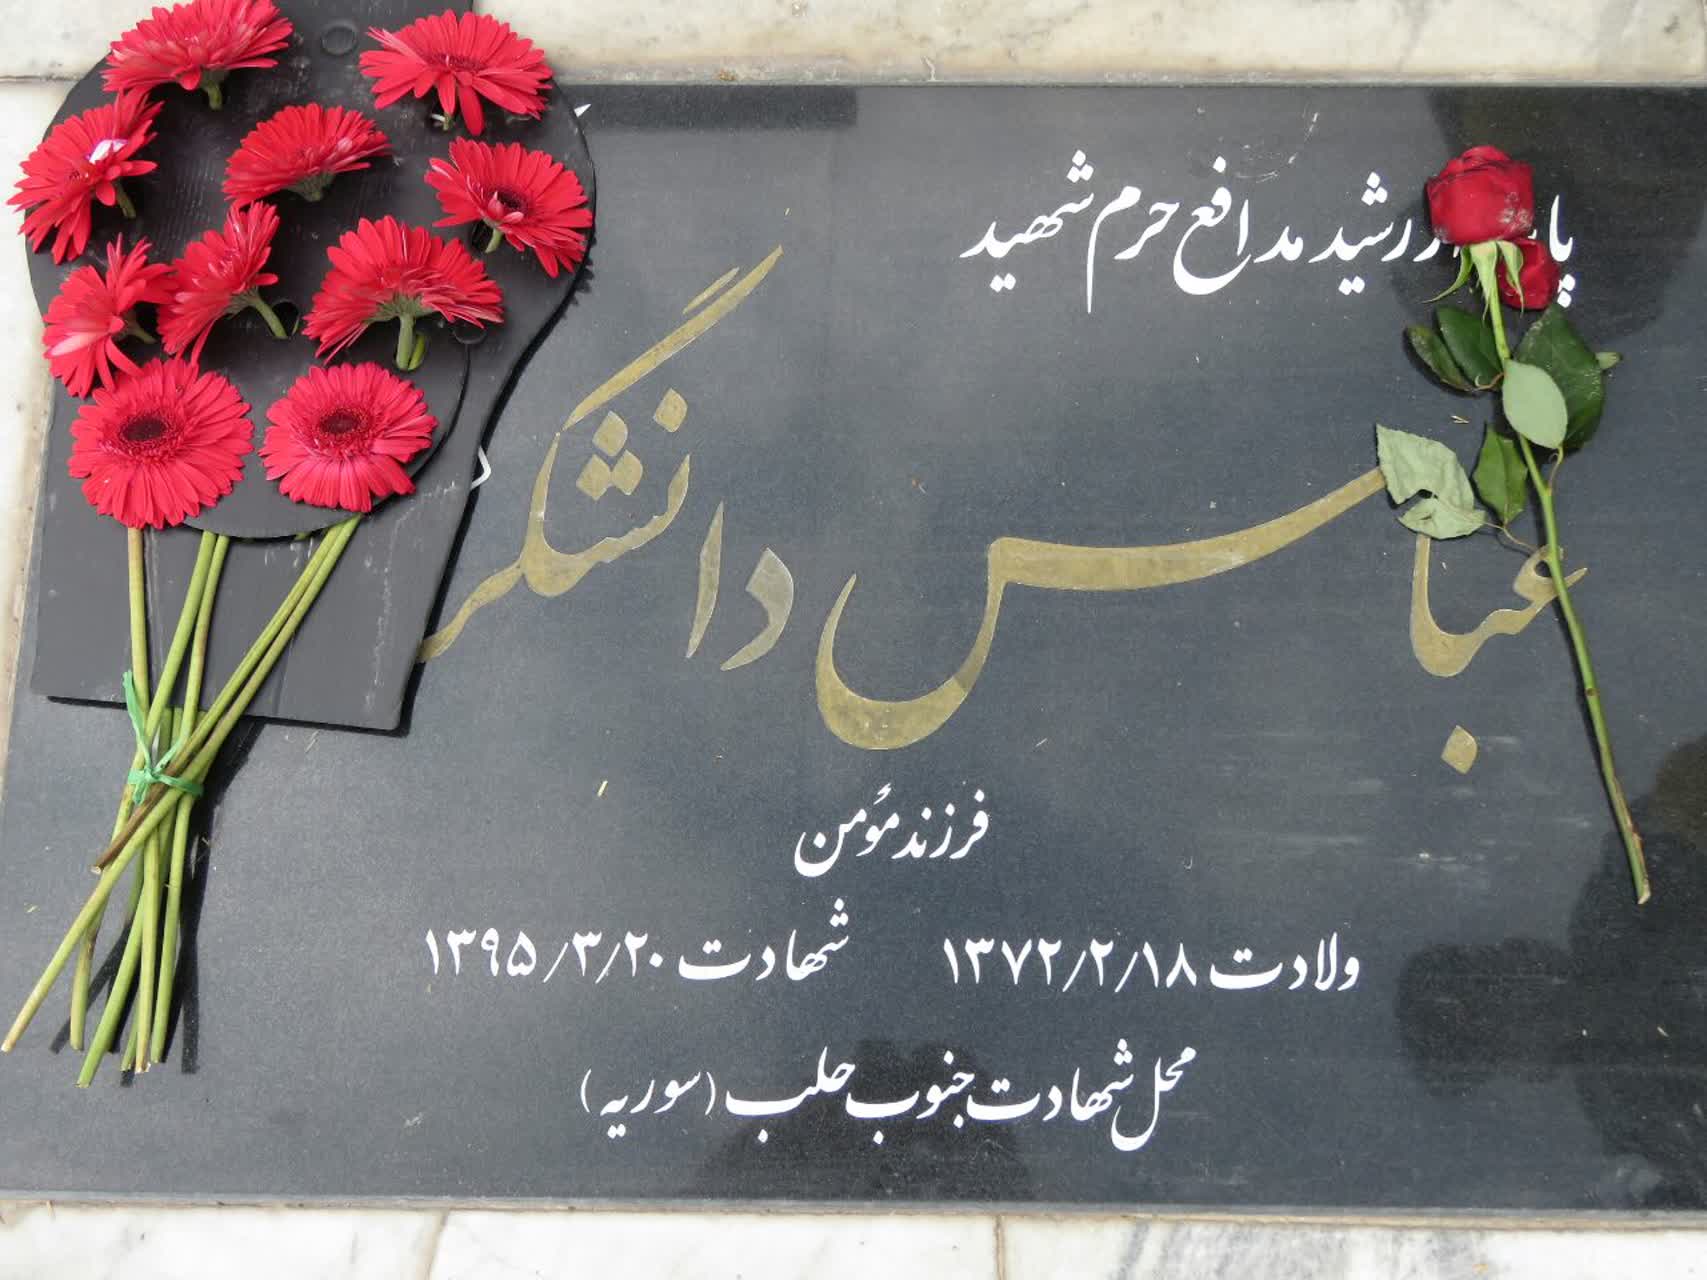 رشید مدافع حرم شهید
عباس دانشگر
فرزند مؤمن
ولادت ۱۳۷۲/۲/۱۸ شهادت ۱۳۹۵/۳/۲۰
محل شهادت جنوب حلب (سوریه)